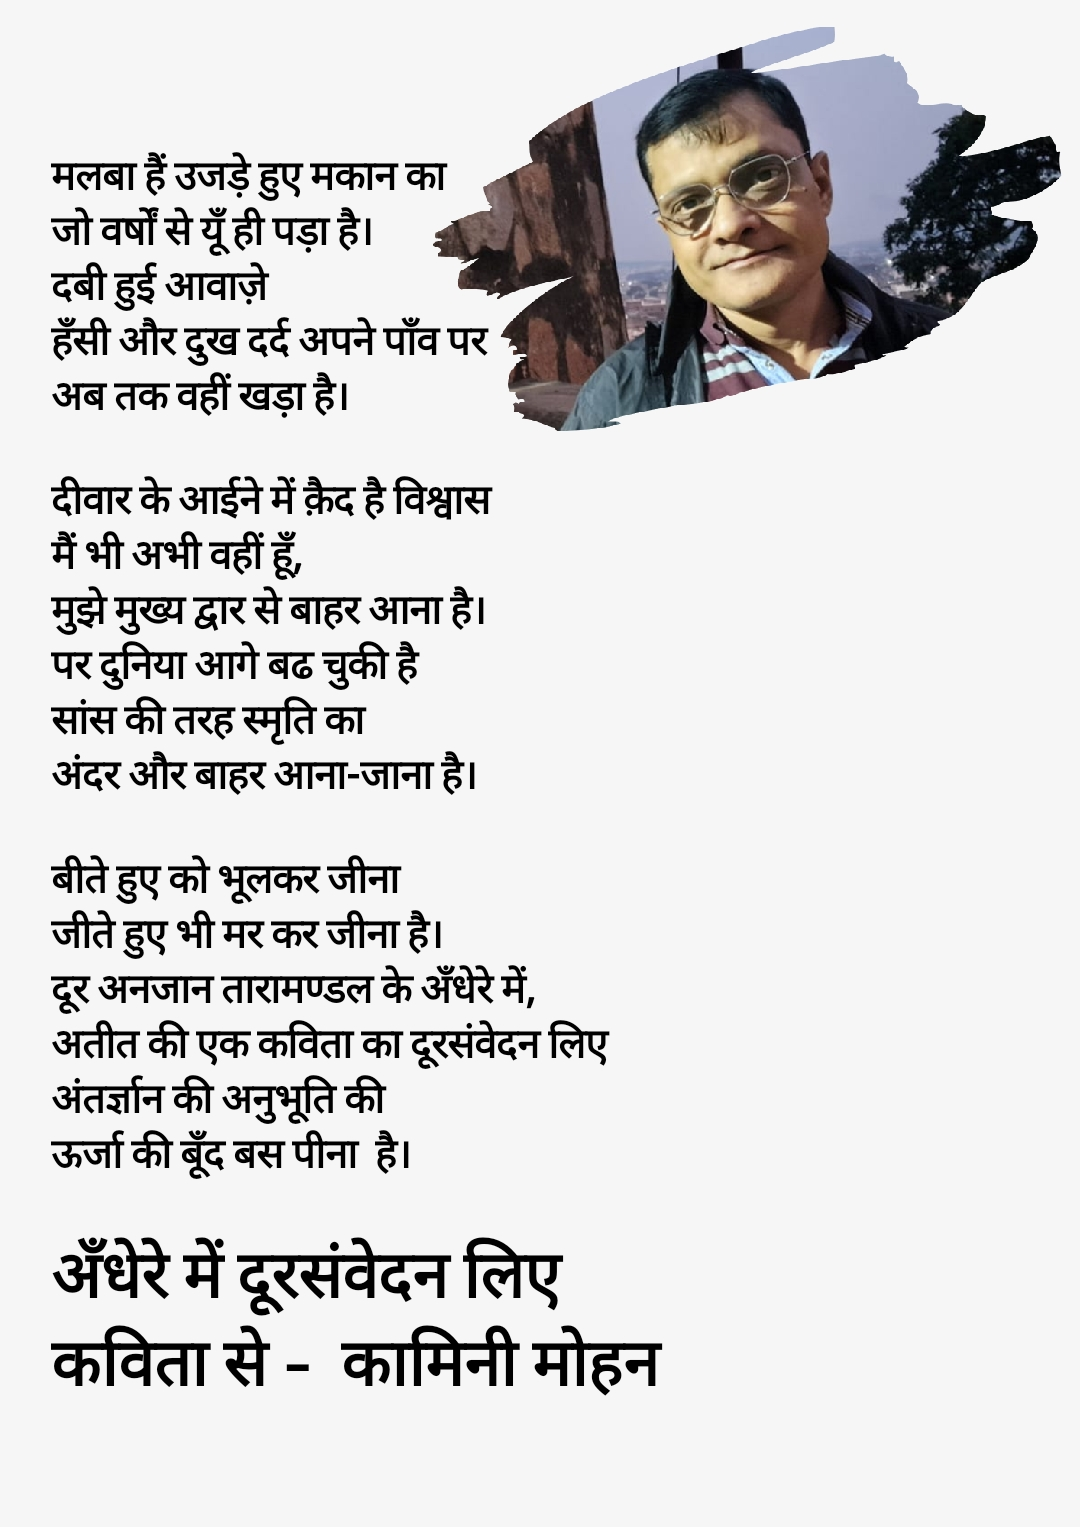 मलबा हैं उजड़े हुए मकान का
जो वर्षों से यूँ ही पड़ा है।
दबी हुई आवाज़े
हँसी और दुख दर्द अपने पाँव पर
अब तक वहीं खड़ा है।
दीवार के आईने में क़ैद है विश्वास
मैं भी अभी वहीं हूँ,
मुझे मुख्य द्वार से बाहर आना है।
पर दुनिया आगे बढ चुकी है
सांस की तरह स्मृति का
अंदर और बाहर आना-जाना है।
बीते हुए को भूलकर जीना
जीते हुए भी मर कर जीना है।
दूर अनजान तारामण्डल के अँधेरे में,
अतीत की एक कविता का दूरसंवेदन लिए
अंतर्ज्ञान की अनुभूति की
ऊर्जा की बूँद बस पीना  है।
अँधेरे में दूरसंवेदन लिए
कविता से -  कामिनी मोहन